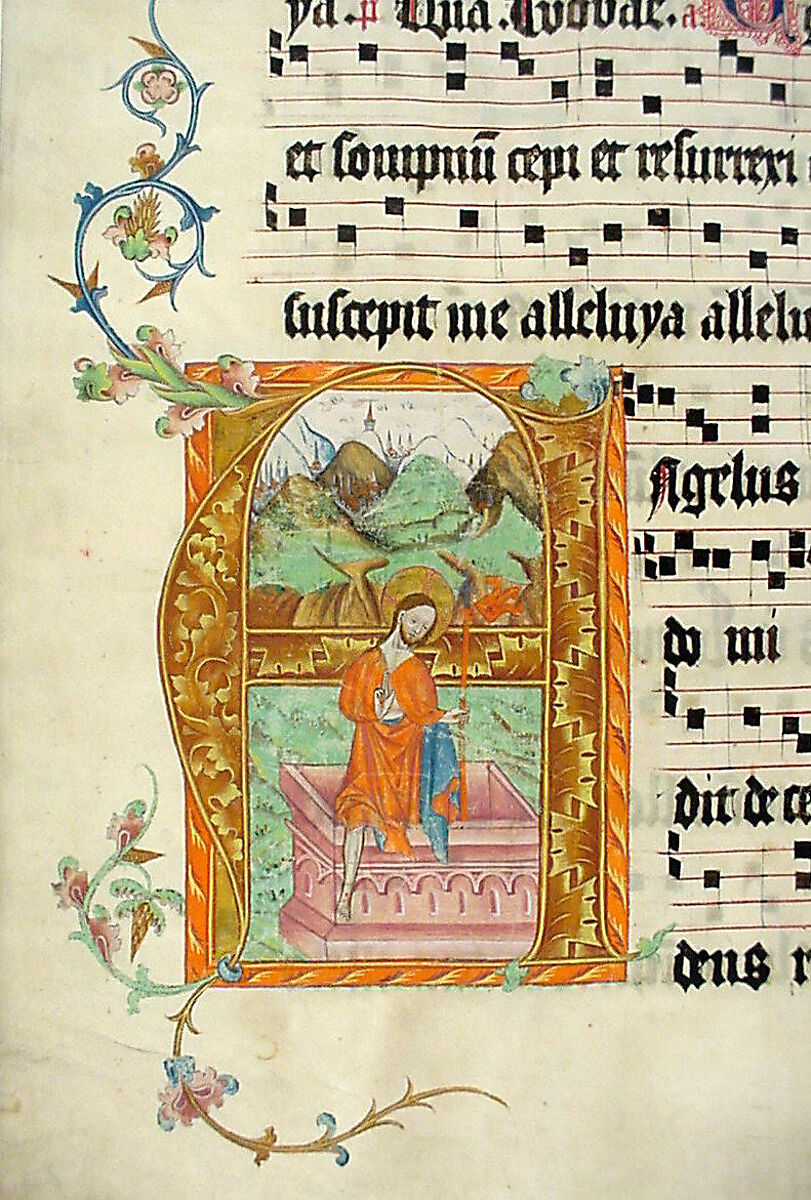 ya.
et sompnū cepi et resurrexi
suscepit me alleluya allelu
ANgelus
do mi
dit de ce
dens r